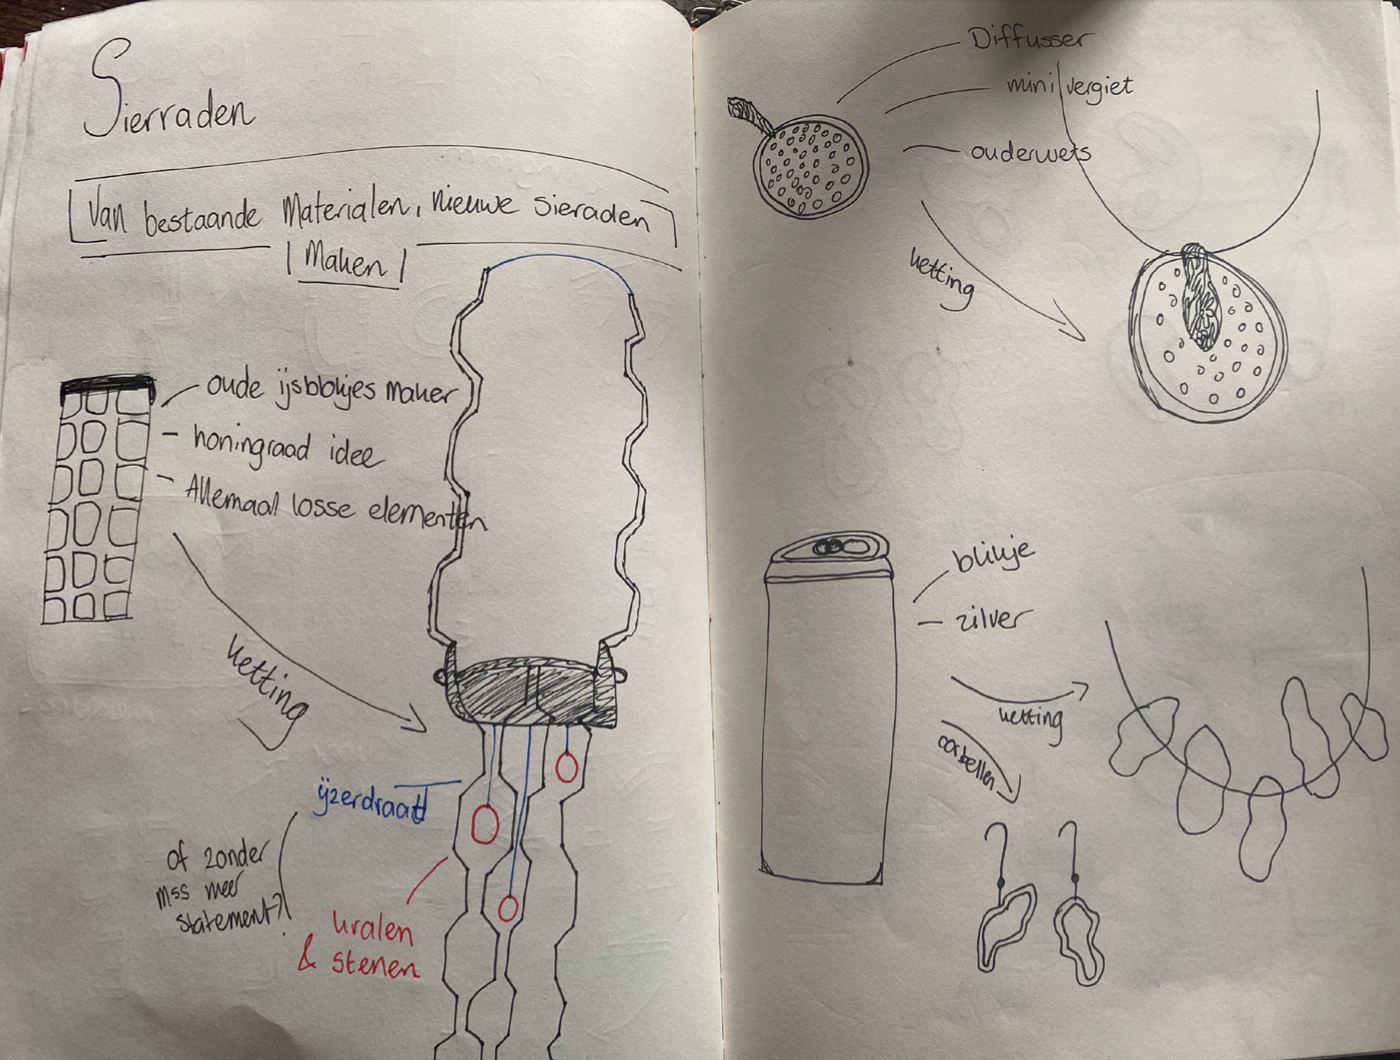 Sierraden
Van bestaande Materialen, nieuwe sieraden
Maken
oude ijsblokjes maker
honingraad idee
Allemaal losse elementen
ketting
ijzerdraad
of zonder
mss meer
statement?
kralen
& stenen
Diffusser
mini vergiet
ouderwets
ketting
blikje
zilver
ketting
oorbellen